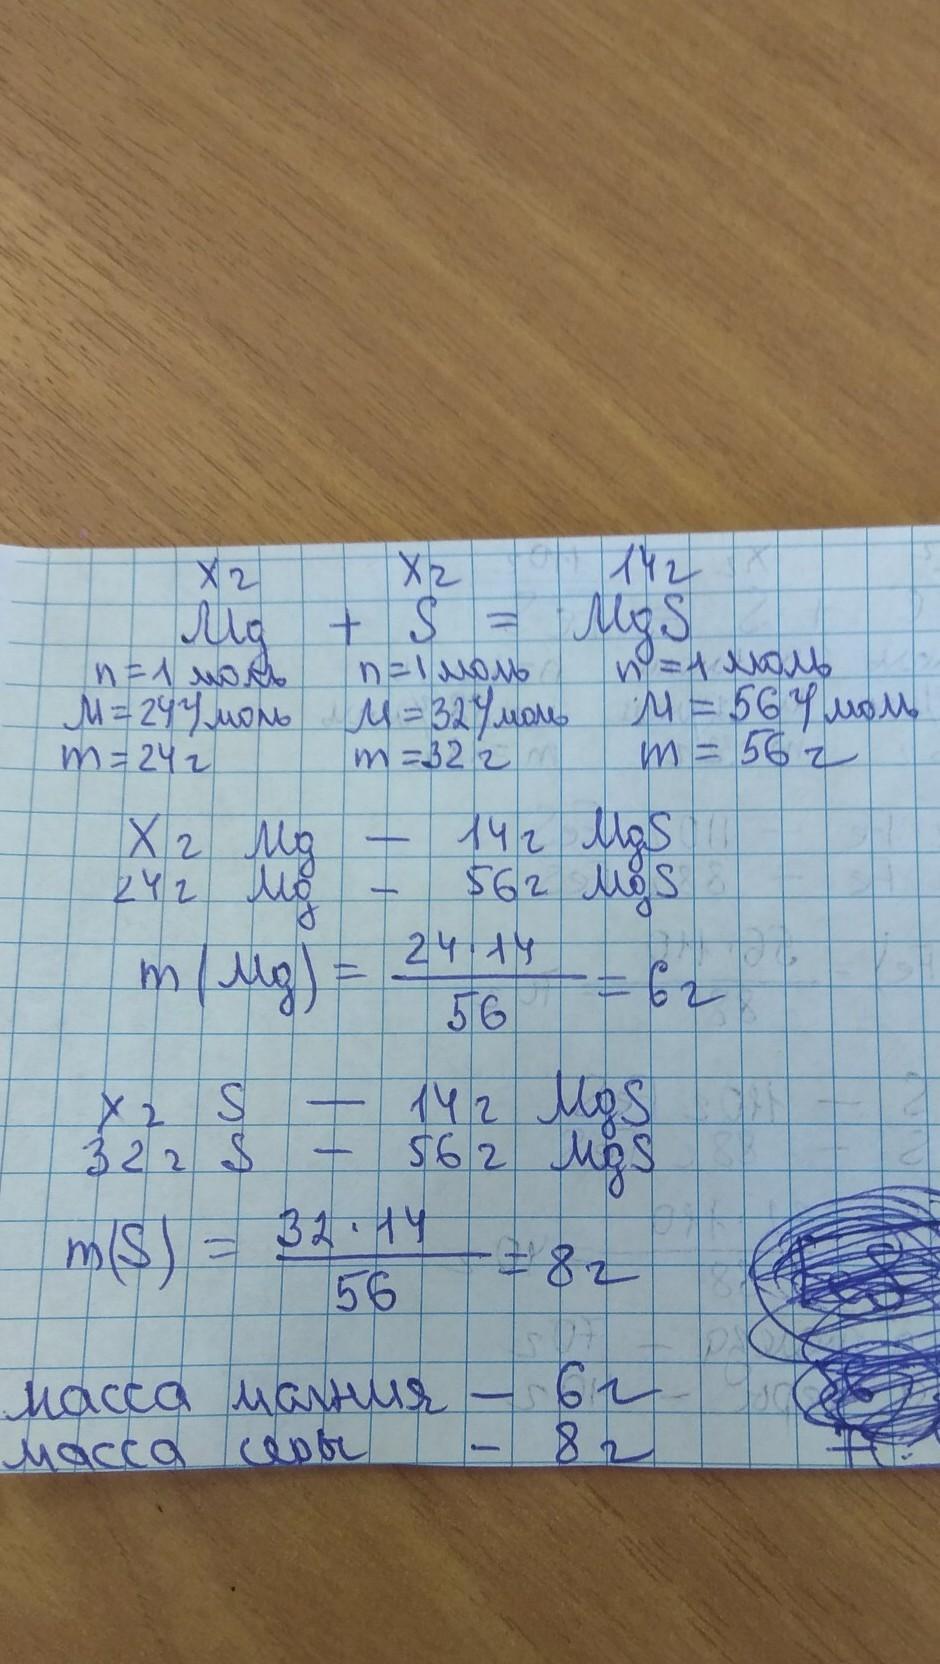 X г X г 14 г
Mg + S = MgS
n = 1 моль n = 1 моль n = 1 моль
M = 24 г/моль M = 32 г/моль M = 56 г/моль
m = 24 г m = 32 г m = 56 г
X г Mg — 14 г MgS
24 г Mg — 56 г MgS
m (Mg) = 24 · 14 / 56 = 6 г
X г S — 14 г MgS
32 г S — 56 г MgS
m(S) = 32 · 14 / 56 = 8 г
масса магния — 6 г
масса серы — 8 г